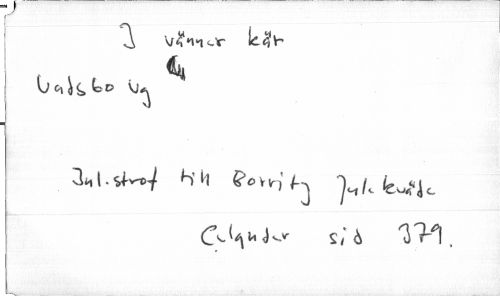 I vänner kär
Vadsbo Vg
Inl.strof till Borritz Julekväde
Celander sid 379.